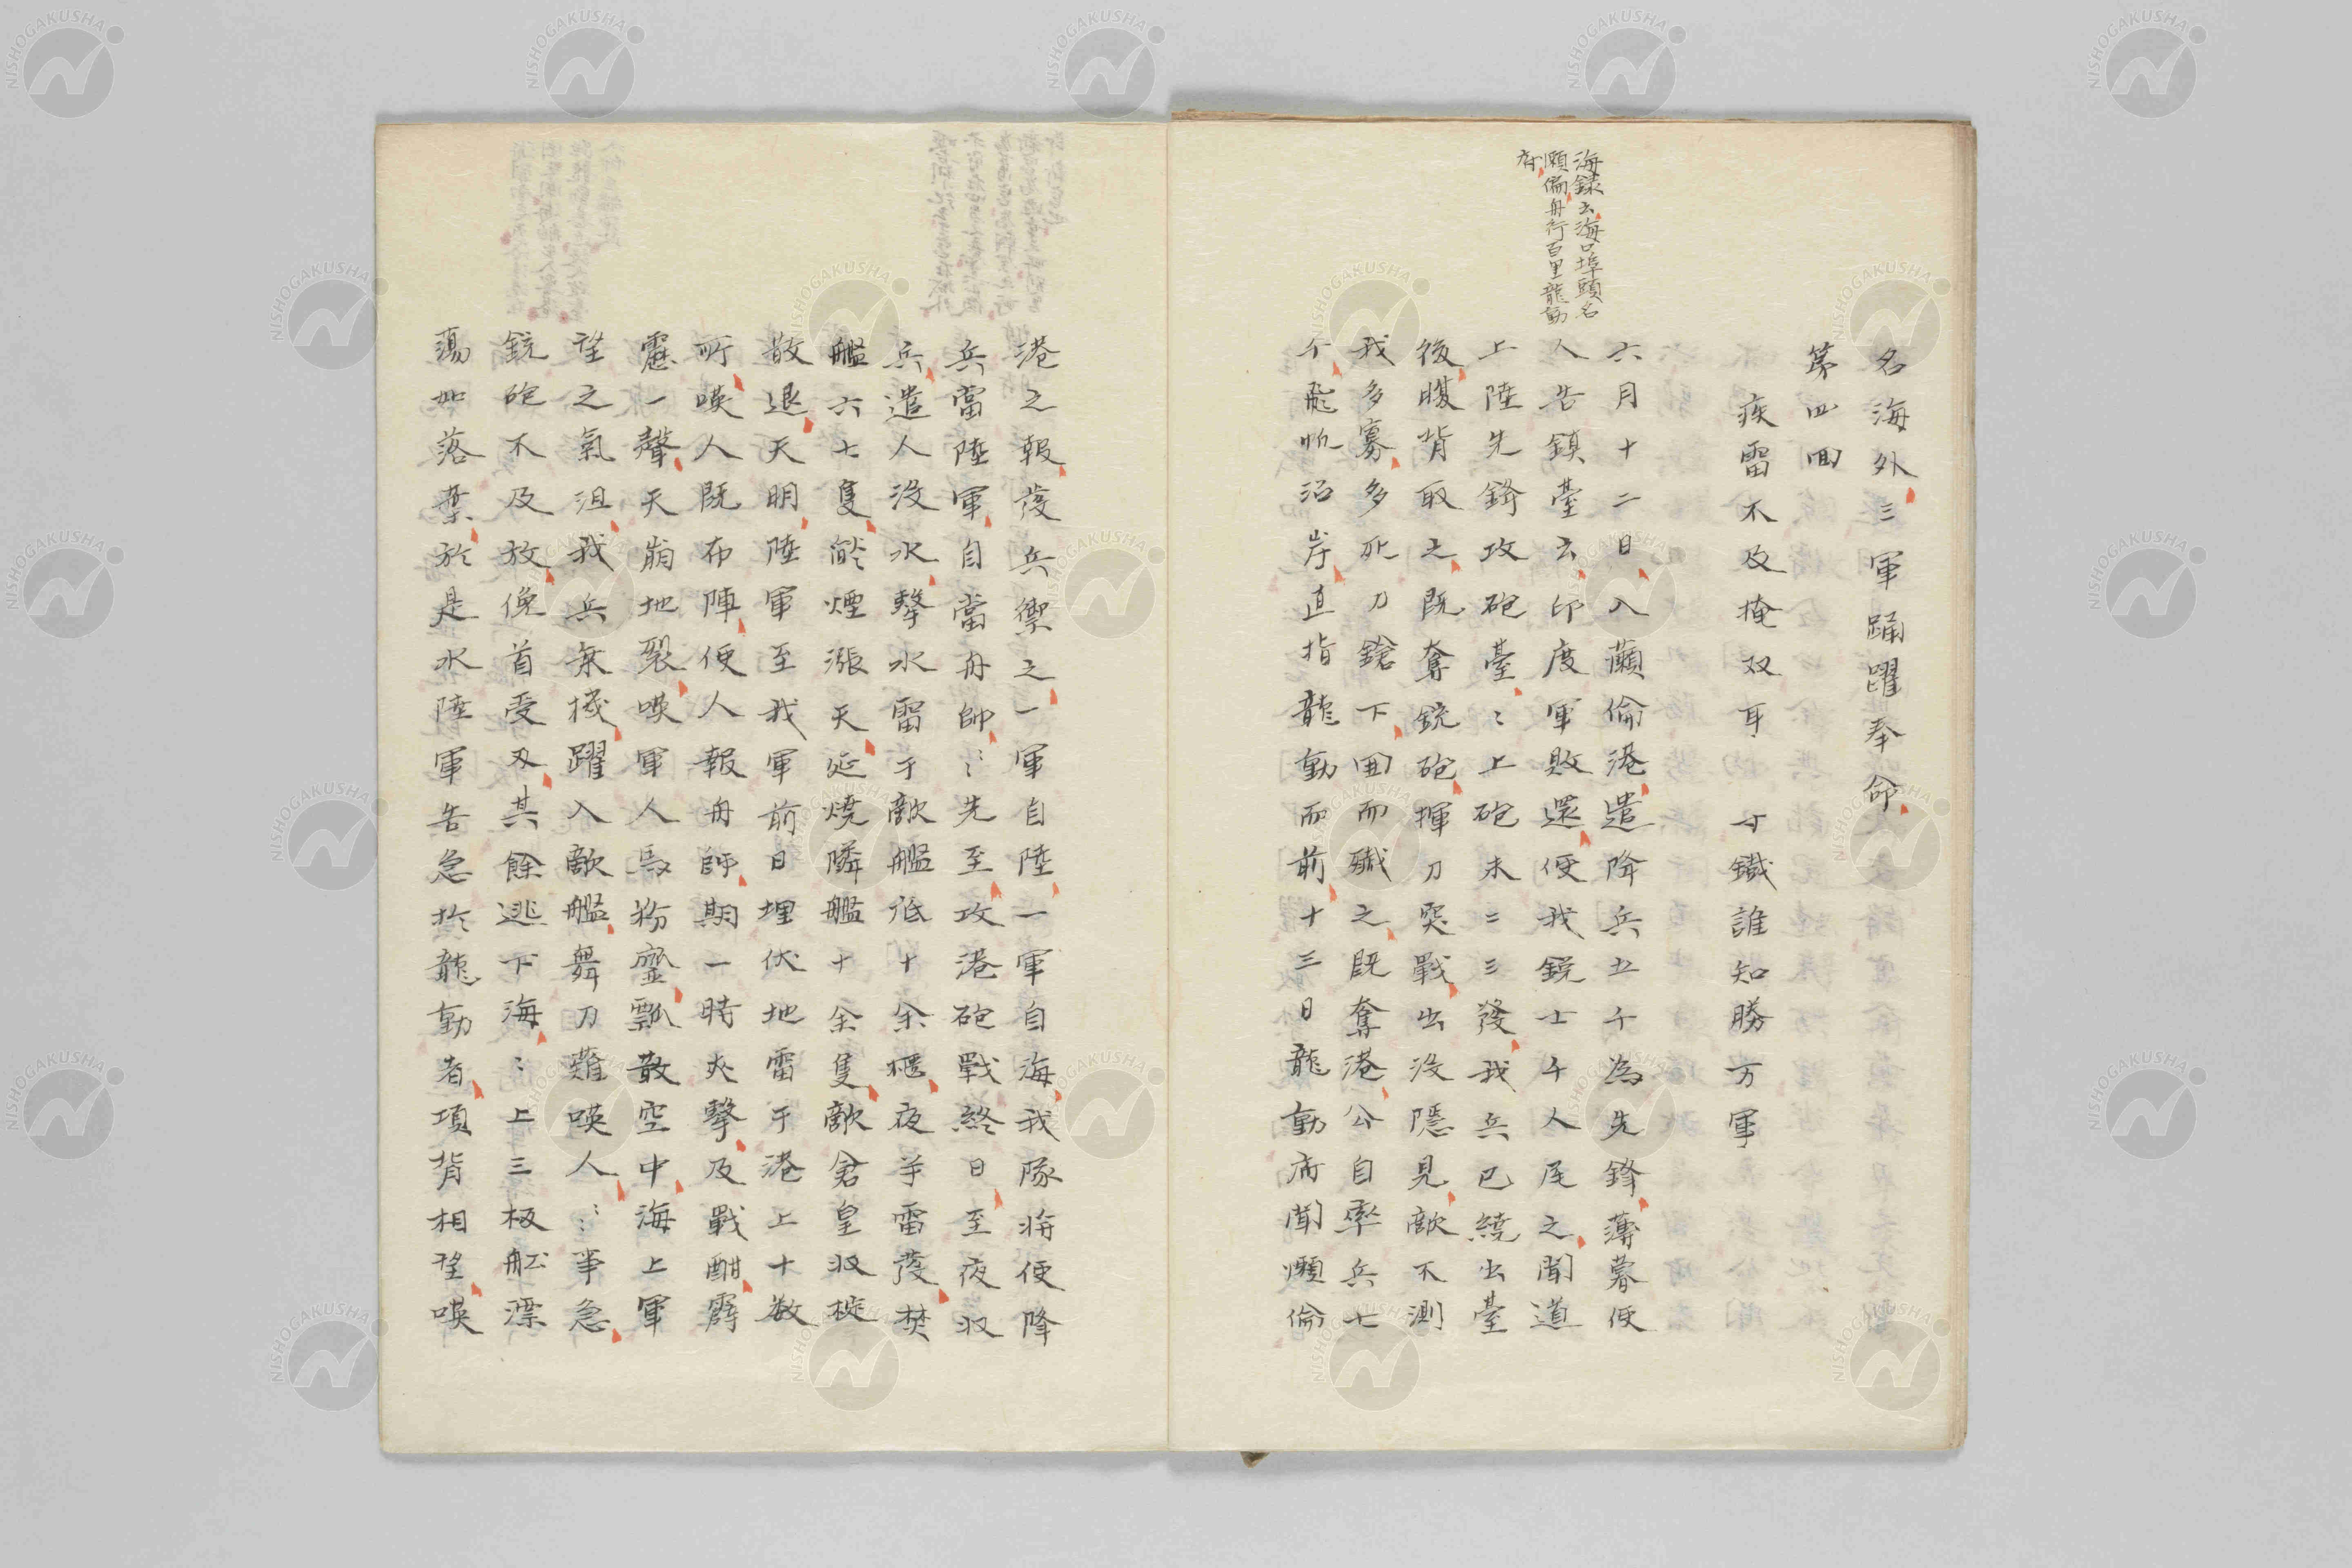 名海外三軍踊躍奉命
第四回
疾雷不及掩双耳 寸鐵誰知勝万軍
海録云海口埠頭名
願倫舟行百里龍動
府
六月十二日入蘭倫港遣降兵五千為先鋒薄暮便
人告鎮臺云印度軍敗還便我鋭士千人尾之聞道
上陸先鋒攻砲臺〻上砲未二三發我兵已繞出臺
後腹背取之既奪銃砲揮刀突戰出没隱見敵不測
我多寡多死刀鎗下囲而殲之既奪港公自率兵七
千飛帆沿岸直指龍動而前十三日龍動府聞願倫
港之報落兵禦之一軍自陸一軍自海我隊将便降
兵當陸軍自當舟帥〻〻先至攻港砲戰終日至夜収
兵遣人没水撃水雷于敵艦底十余櫃夜半雷發焚
艦六七隻餘煙漲天延燒隣艦十余隻敵倉皇収椗
散退天明陸軍至我軍前日埋伏地雷于港上十数
所暎人既布陣便人報舟師期一時夾撃及戰酣霹
靂一聲天崩地裂暎軍人馬粉韲飄散空中海上軍
望之氣沮我兵乗機躍入敵艦舞刀薙暎人〻〻事急
銃砲不及放俛首受刄其餘逃下海〻上三板舩漂
蕩如落葉於是水陸軍告急於龍動者項背相望暎